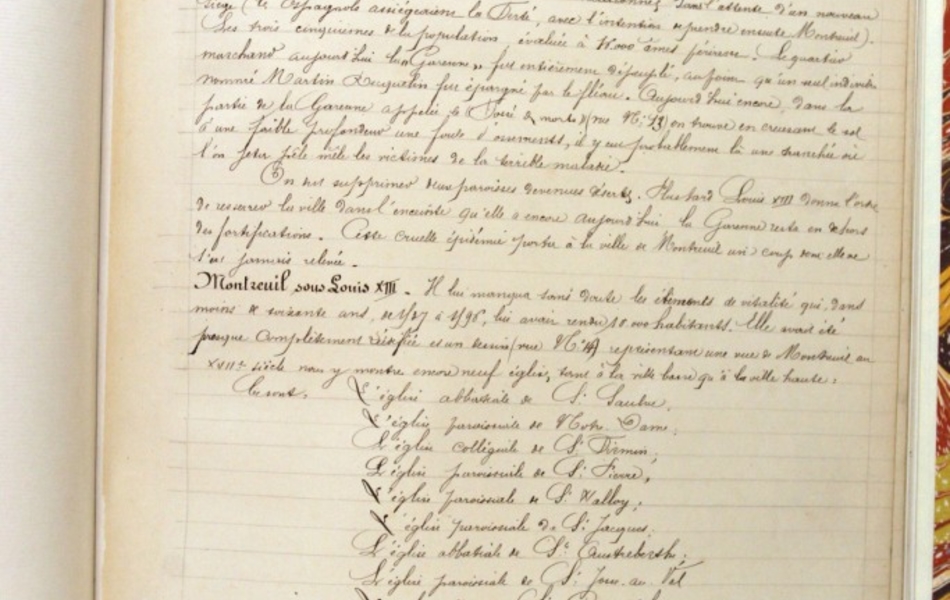 dans l'attente d'un nouveau
siège (les Espagnols assiégeaient la Ferté, avec l'intention de prendre ensuite Montreuil).
Les trois cinquièmes de la population, évaluée à âmes périrent. Le quartier
marchand aujourd'hui la "Garenne" fut entièrement dépeuplé, au point qu'un seul individu
nommé Martin fut épargné par le fléau. Aujourd'hui encore, dans la
partie de la Garenne appelée le Fossé des morts (vue N° 13) on trouve en creusant le sol
à une faible profondeur une foule d'ossements, il y eut probablement là une tranchée où
l'on jeta pêle mêle les victimes de la terrible maladie.
On dut supprimer deux paroisses devenues désertes. Plus tard Louis XIII donne l'ordre
de resserrer la ville dans l'enceinte qu'elle a encore aujourd'hui la Garenne reste en dehors
des fortifications. Cette cruelle épidémie porta à la ville de Montreuil un coup dont elle ne
s'est jamais relevée.
Montreuil sous Louis XIII. Il lui manqua sans doute les éléments de vitalité qui, dans
moins de soixante ans, de 1537 à 1596, lui avait rendu habitants. Elle avait été
presque complètement réédifiée et un dessin (vue N° 14) représentant une vue de Montreuil au
XVIIe siècle nous y montre encore neuf églises, tant à la ville basse qu'à la ville haute:
Ce sont: L'église abbatiale de St Saulve.
L'église paroissiale de Notre-Dame;
L'église collégiale de St Firmin;
L'église paroissiale de St Pierre;
L'église paroissiale de St Walloy;
L'église paroissiale de St Jacques;
L'église abbatiale de Ste Austreberthe;
L'église paroissiale de St Jean-au-Val